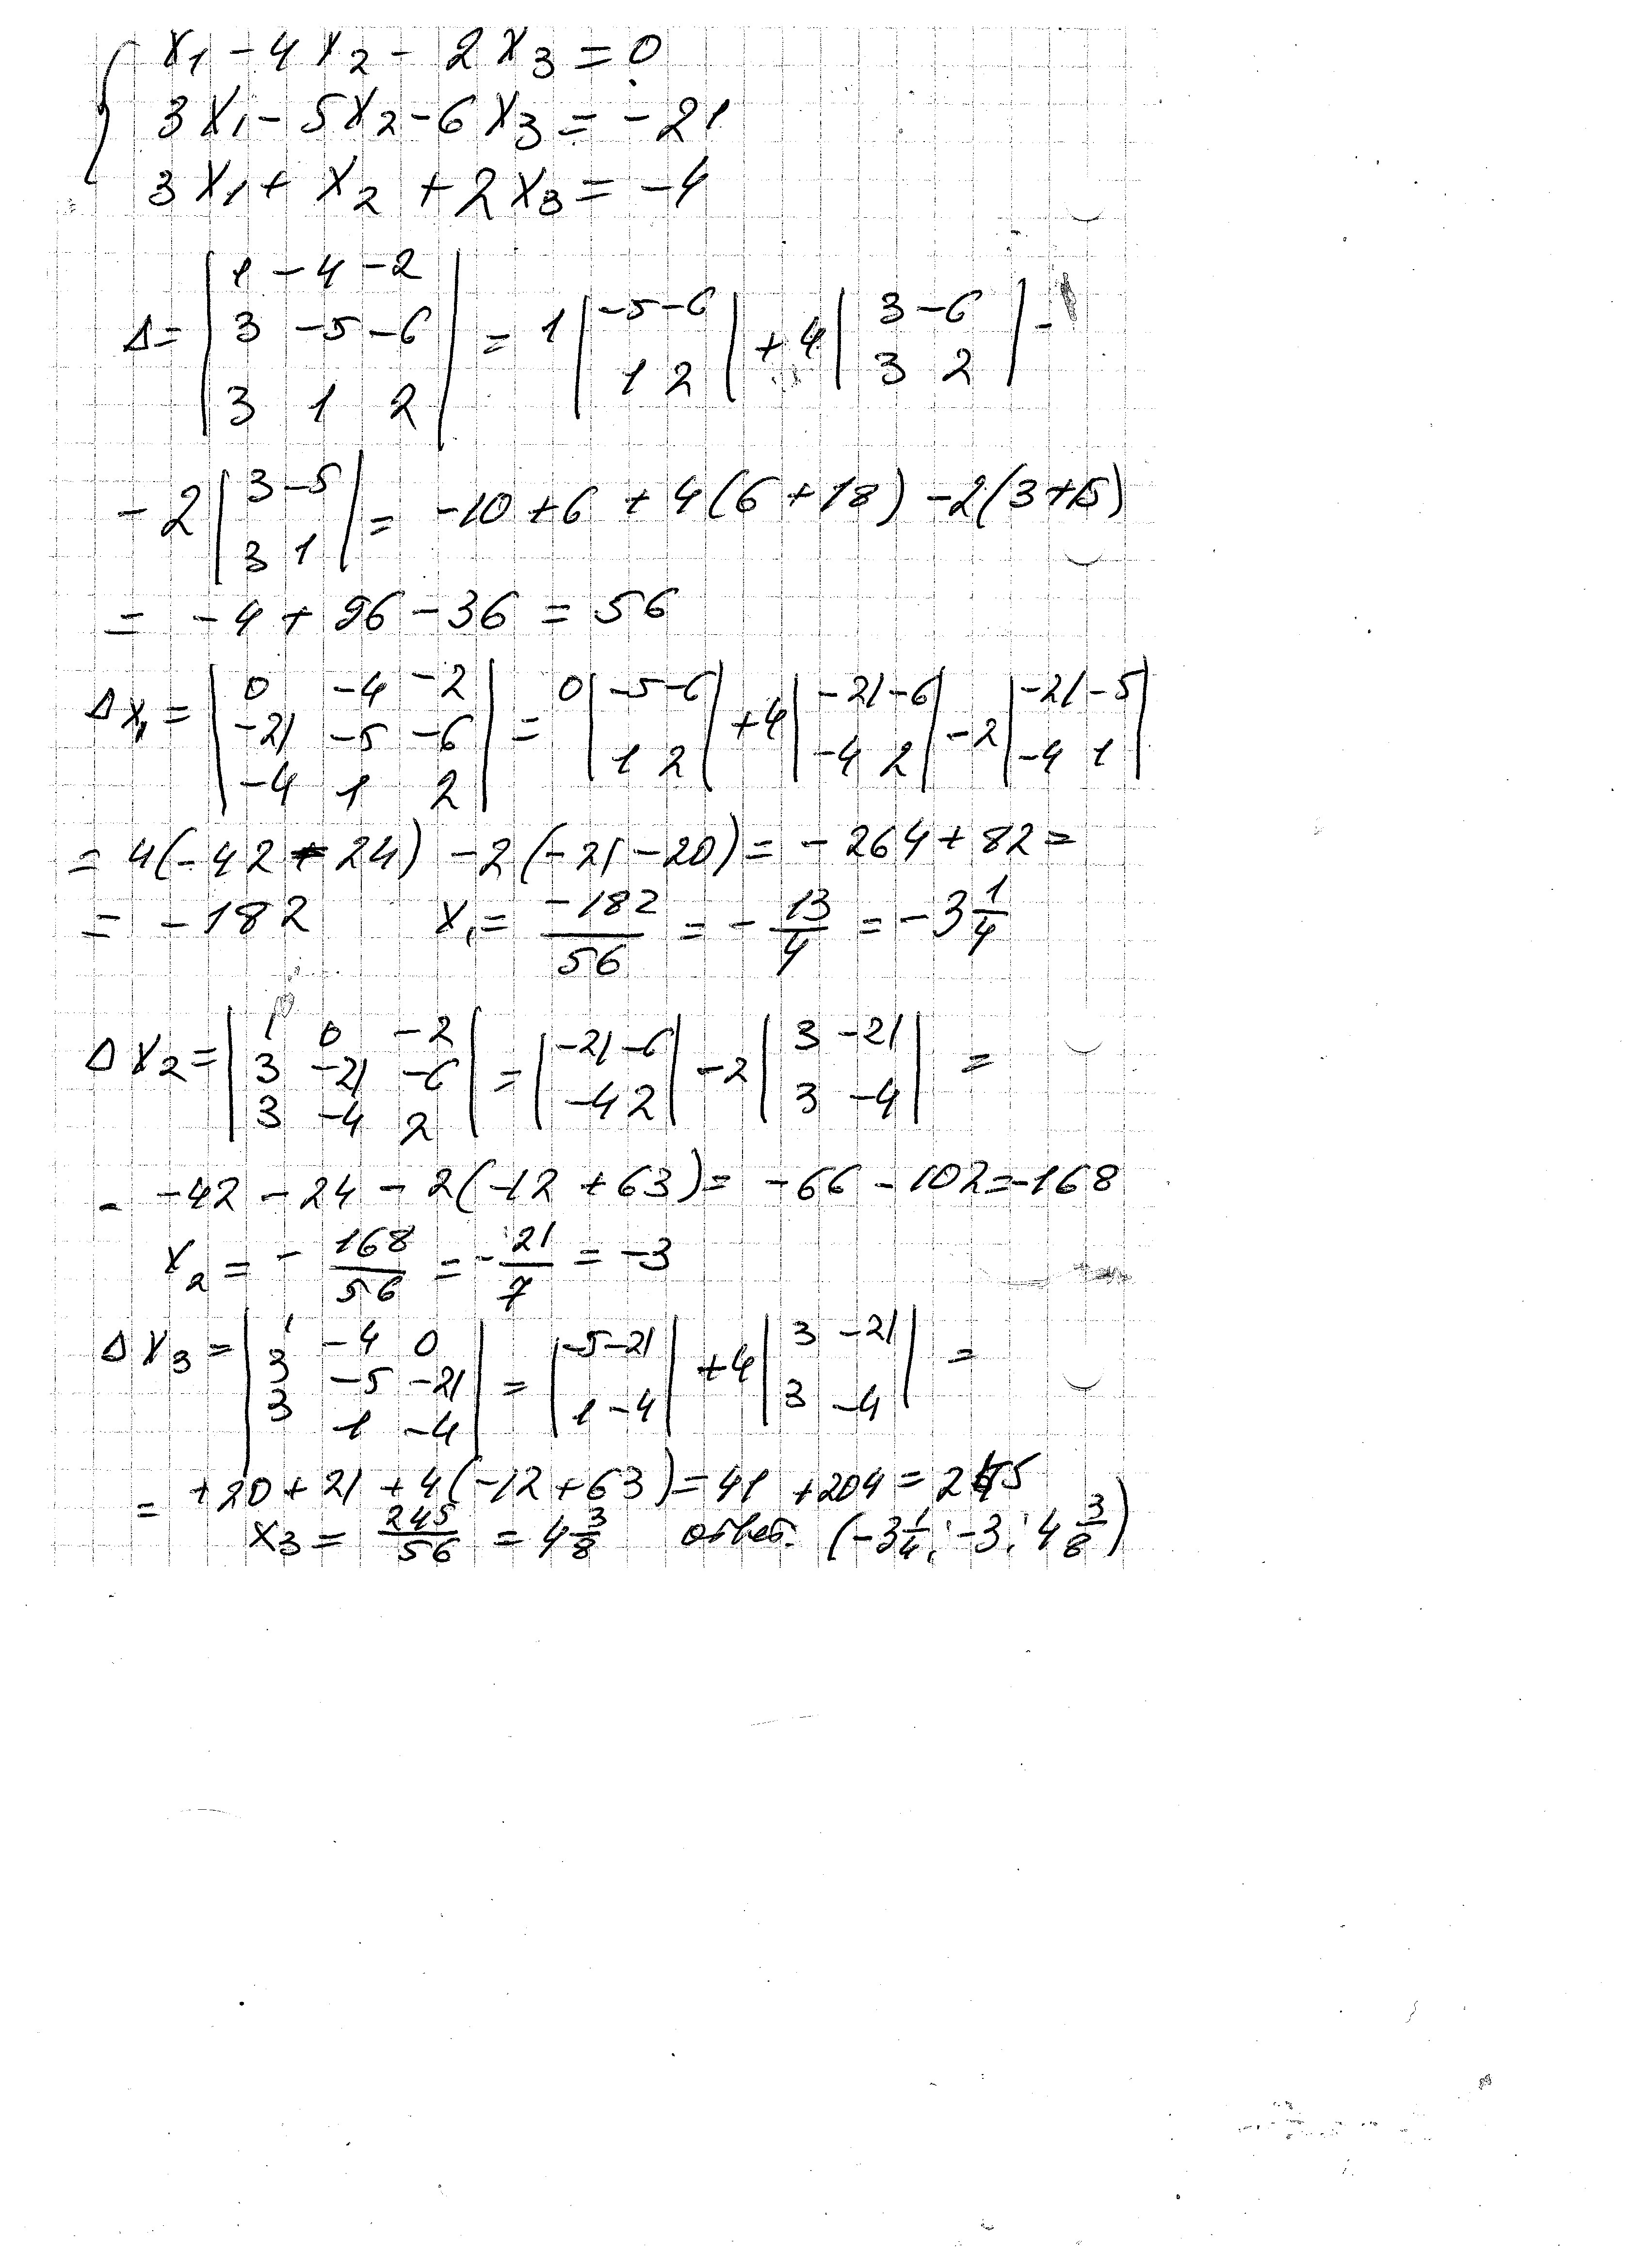 { x₁ - 4x₂ - 2x₃ = 0
3x₁ - 5x₂ - 6x₃ = -21
3x₁ + x₂ + 2x₃ = -4
Δ = | 1 -4 -2 ; 3 -5 -6 ; 3 1 2 | = 1 | -5 -6 ; 1 2 | + 4 | 3 -6 ; 3 2 | -
- 2 | 3 -5 ; 3 1 | = -10 + 6 + 4(6 + 18) - 2(3 + 15)
= -4 + 96 - 36 = 56
Δx₁ = | 0 -4 -2 ; -21 -5 -6 ; -4 1 2 | = 0 | -5 -6 ; 1 2 | + 4 | -21 -6 ; -4 2 | - 2 | -21 -5 ; -4 1 |
= 4(-42 - 24) - 2(-21 - 20) = -264 + 82 =
= -182 x₁ = -182/56 = -13/4 = -3 1/4
Δx₂ = | 1 0 -2 ; 3 -21 -6 ; 3 -4 2 | = | -21 -6 ; -4 2 | - 2 | 3 -21 ; 3 -4 | =
= -42 - 24 - 2(-12 + 63) = -66 - 102 = -168
x₂ = -168/56 = -21/7 = -3
Δx₃ = | 1 -4 0 ; 3 -5 -21 ; 3 1 -4 | = | -5 -21 ; 1 -4 | + 4 | 3 -21 ; 3 -4 | =
= +20 + 21 + 4(-12 + 63) = 41 + 204 = 245
x₃ = 245/56 = 4 3/8 ответ. (-3 1/4; -3; 4 3/8)